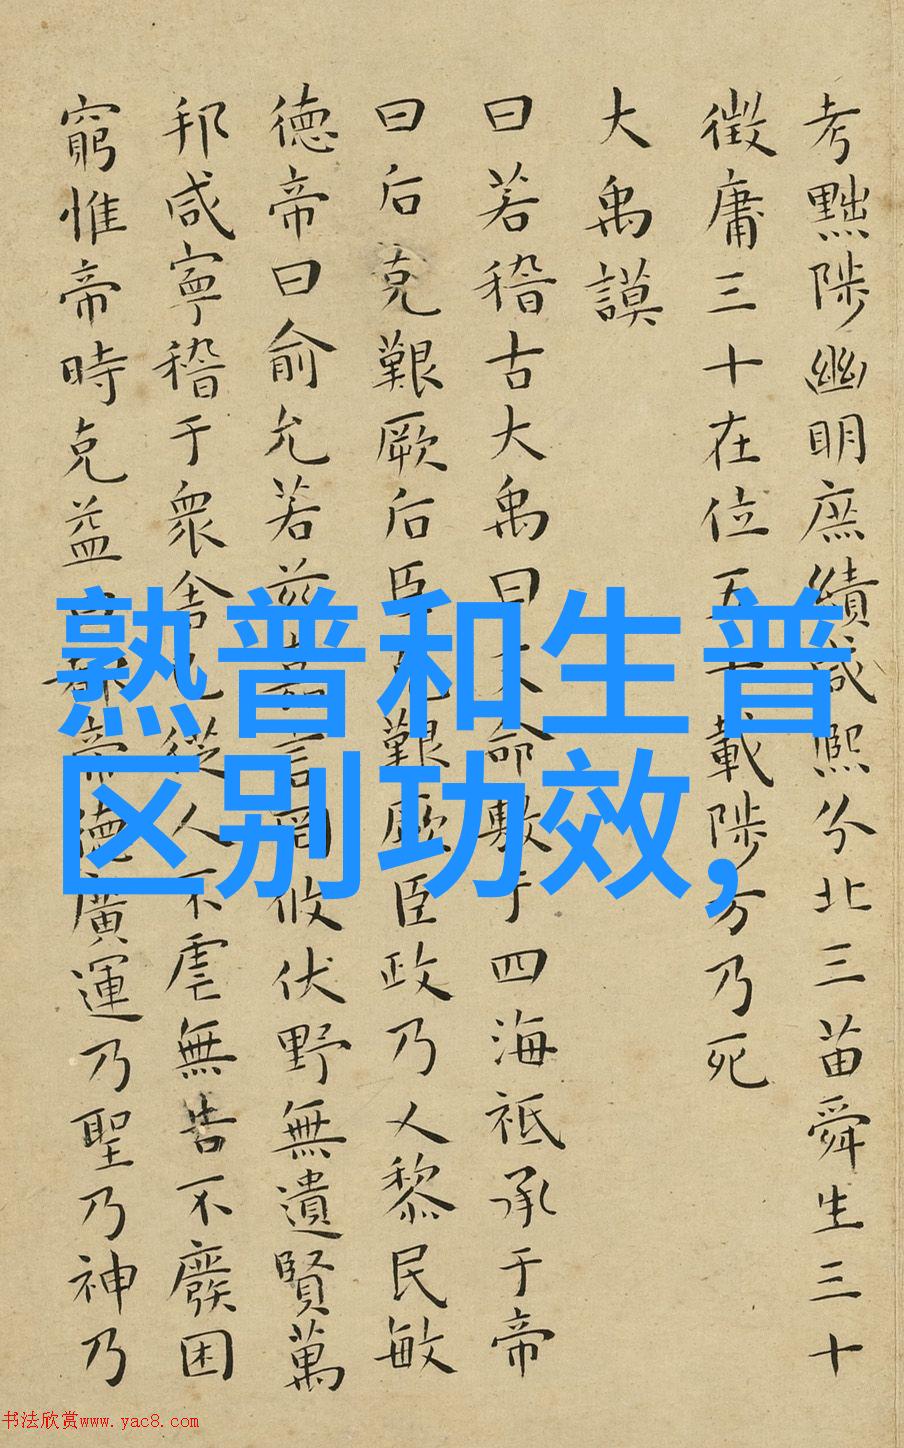 考黜陟幽明庶績咸熙分北三苗舜生三十
徵庸三十在位五十載陟方乃死
大禹謨
曰若稽古大禹曰文命敷于四海祗承于帝
曰后克艱厥后臣克艱厥臣政乃乂黎民敏
德帝曰俞允若茲嘉言罔攸伏野無遺賢萬
邦咸寧稽于衆舍己從人不虐無告不廢困
窮惟帝時克益曰都帝德廣運乃聖乃神乃
熟普和生普
区别功效,
书法欣赏www.yac8.com